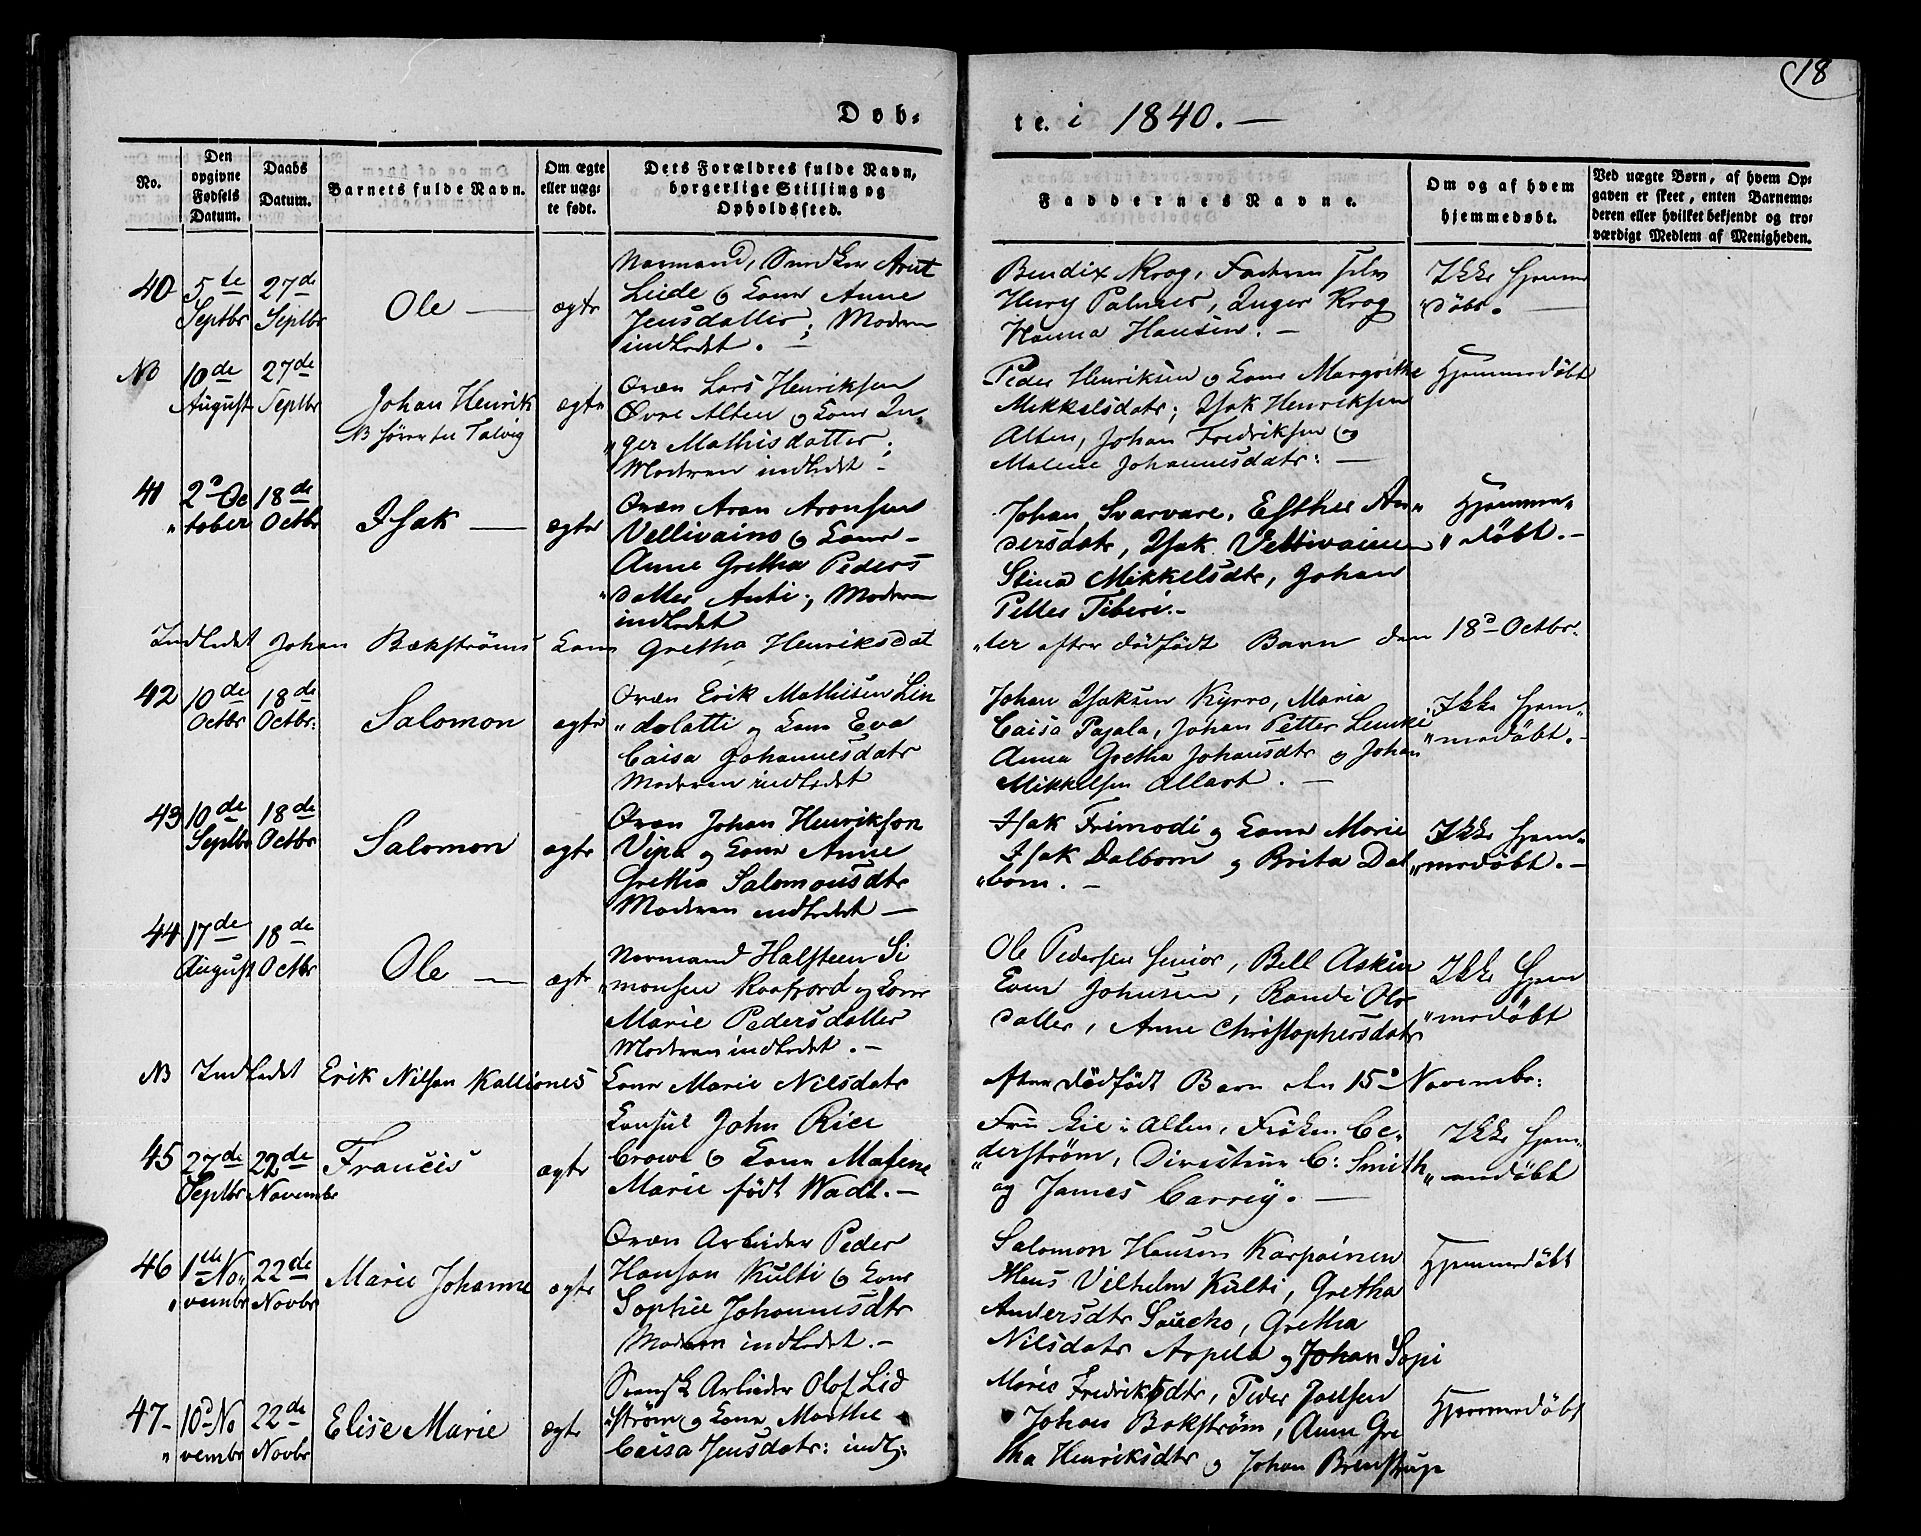 18
Døb-
te. i 1840. —
No.
Den opgivne Fødsels Datum.
Daabs Datum.
Barnets fulde Navn.
Om ægte eller uæg-te født.
Dets Forældres fulde Navn, borgerlige Stilling og Opholdssted.
Faddernes Navne.
Om og af hvem hjemmedøbt.
Ved uægte Børn, af hvem Op-
gaven er skeet, enten Barnemo-
deren eller hvilket bekjendt og tro-
værdigt Medlem af Menigheden.
40 5te Septbr 27de Septbr Ole — ægte
Normand, Arnt
Leide og Kone Anne
Jensdatter; Modren
indledet. —
Bendix Krog, Faderen selv
Henry Palmer, Inger Krog
Hanna Hansen. —
Ikke hjemme
døbt. —
NB 10de August 27de Septbr Johan Henrik ægte
NB hører til Talvig
Qvæn Lars Henriksen
Øvre Alten og Kone In-
"ger Mathisdatter;
Modren indledet —
Peder Henriksen og Kone Margrethe
Mikkelsdatr; Isak Henriksen
Alten, Johan Fredriksen og
Malene Johannesdatr: —
Hjemmedøbt
41 2d Oc"tober 18de Octbr Isak — ægte
Qvæn Aron Aronsen
Vellivaino og Kone —
Anne Gretha Peders
"datter Anti; Modren
indledet
Johan Svarvare, Esther An"
dersdatr, Isak Vettivainen
Stina Mikkelsdtr, Johan
Petter Tiberi. —
Hjemme"
"døbt. —
Indledet Johan Bækstrøms Kone Gretha Henriksdat
"ter efter dødfødt Barn den 18d Octbr.
42 10de Octbr 18de Octbr: Salomon ægte
Qvæn Erik Mathisen Lin
"dolatti og Kone Eva
Caisa Johannesdatr
Modren indledet
Johan Isaksen Kyrro, Maria
Caisa Pajala, Johan Petter
Anna Gretha Johansdtr og Johan
Mikkelsen Allart. —
Ikke hjem"
"medøbt. —
43 10de Septbr 18de Octbr Salomon ægte
Qvæn Johan Henrikson
Vipa og Kone Anne
Gretha Salomonsdtr
Modren indledet —
Isak Frimodi og Kone Marie
Isak Dalbom og Brita Dal
"bom. —
Ikke hjem"
"medøbt. —
44 17de August 18de Octbr Ole — ægte
Normand Halsteen Si
"monsen Raafjord og Kone
Marie Pedersdatter
Modren indledet. —
Ole Pedersen senior, Bell Askin
Even Johnsen, Randi Ols
datter, Anne Christophersdatr
Ikke hjem
"medøbt
NB Indledet Erik Nilsen Kallionес Kone Marie Nilsdatr
efter dødfødt Barn den 15d Novembr:
45 27de Septbr 22de Novembr Francis ægte
Consul John Rice
Crowe og Kone Malene
Marie født Wadt. —
Fru i Alten, Frøken Ce-
"derstrøm, Directeur C: Smith
og James Carrey. —
Ikke hjem
"medøbt
46 1ste No"vembr 22de Novbr Marie Johanne ægte
Qvæn Arbeider Peder
Hanson Kulti og Kone
Sophie Johannesdtr
Modren indledet. —
Salomon Hansen Karpainen
Hans Vilhelm Kulti, Gretha
Andersdtr Soucko, Gretha
Nilsdatr Arpela og Johan Sapi
Hjemmedøbt
47 — 10d No"vembr 22de Novbr Elise Marie ægte
Svensk Arbeider Olof Lid
"strøm og Kone Marthe
Caisa Jensdatr: indl:
Maria Fredriksdtr, Peder Joensen
Johan Bækstrøm, Anne Gre
tha Henriksdtr og Johan Brenstrup
Hjemmedøbt